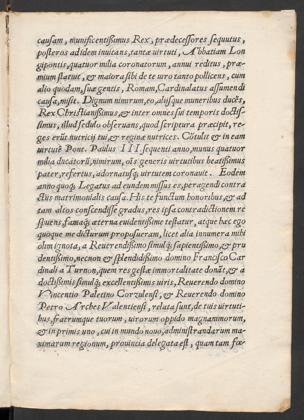 causam, munificentissimus Rex, prædecessores sequutus,
posteros ad idem inuitans, tantæ uirtuti, Abbatiam Lon
gipontis, quatuor milia coronatorum, annui reditus, præ-
mium statuit, & maiora sibi de te uro tanto pollicens, cum
alio quodam, suæ gentis, Romam, Cardinalatus assumendi
causa, misit. Dignum nimirum, eo, aliisque muneribus ducês,
Rex Christianissimus, & inter omnes sui temporis doctis-
simus, illud sedulo obseruans, quod scriptura præcipit, re-
ges erūt nutricij tui, & reginæ nutrices. Cōtulit & in eam
uirtutē Pont. Paulus III. sequenti anno, munus quatuor
milia ducatorū, nimirum, oīs generis uirtutibus beatissimus
pater, refertus, adornatusq; uirtutem coronauit. Eodem
anno quoq; Legatus ad eundem missus es, peragendi contra
ctus matrimonialis causa. His te functum honoribus, & ad
tam altos conscendisse gradus, res ipsa contradictionem re
spuens, famaq; æterna euidentissime testatur, atque hæc ego
quoque me dicturum proposueram, licet alia innumera mihi
olim ignota, a Reuerendissimo simulq; sapientissimo, & pru
dentissimo, necnon & splendidissimo domino Francisco Car
dinali a Turnon, quem res gestæ immortalitate donāt, & a
doctissimis simul q; excellentissimis uiris, Reuerendo domino
Vincentio Paletino Corzulensi, & Reuerendo domino
Petro Arches Valentiensi, relata sunt, de tuis uirtuti-
bus, fratrumque tuorum, uirorum oppido magnanimorum,
& in primis uno, cui in mundo nouo, administrandarum ma-
ximarum regionum, prouincia delegata est, quam tam fœ-